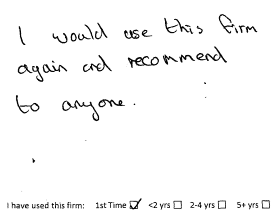 I would use this firm
again and recommend
to anyone.
I have used this firm: 1st Time ☑ <2 yrs ☐ 2-4 yrs ☐ 5+ yrs ☐